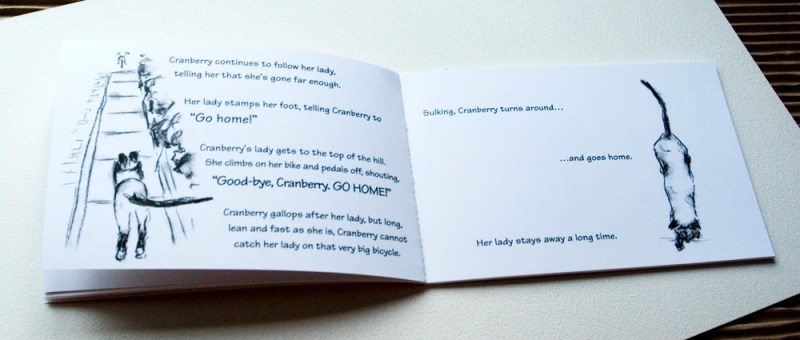 Cranberry continues to follow her lady,
telling her that she's gone far enough.
Her lady stamps her foot, telling Cranberry to
"Go home!"
Cranberry's lady gets to the top of the hill.
She climbs on her bike and pedals off, shouting,
"Good-bye, Cranberry. GO HOME!"
Cranberry gallops after her lady, but long,
lean and fast as she is, Cranberry cannot
catch her lady on that very big bicycle.
Sulking, Cranberry turns around...
...and goes home.
Her lady stays away a long time.